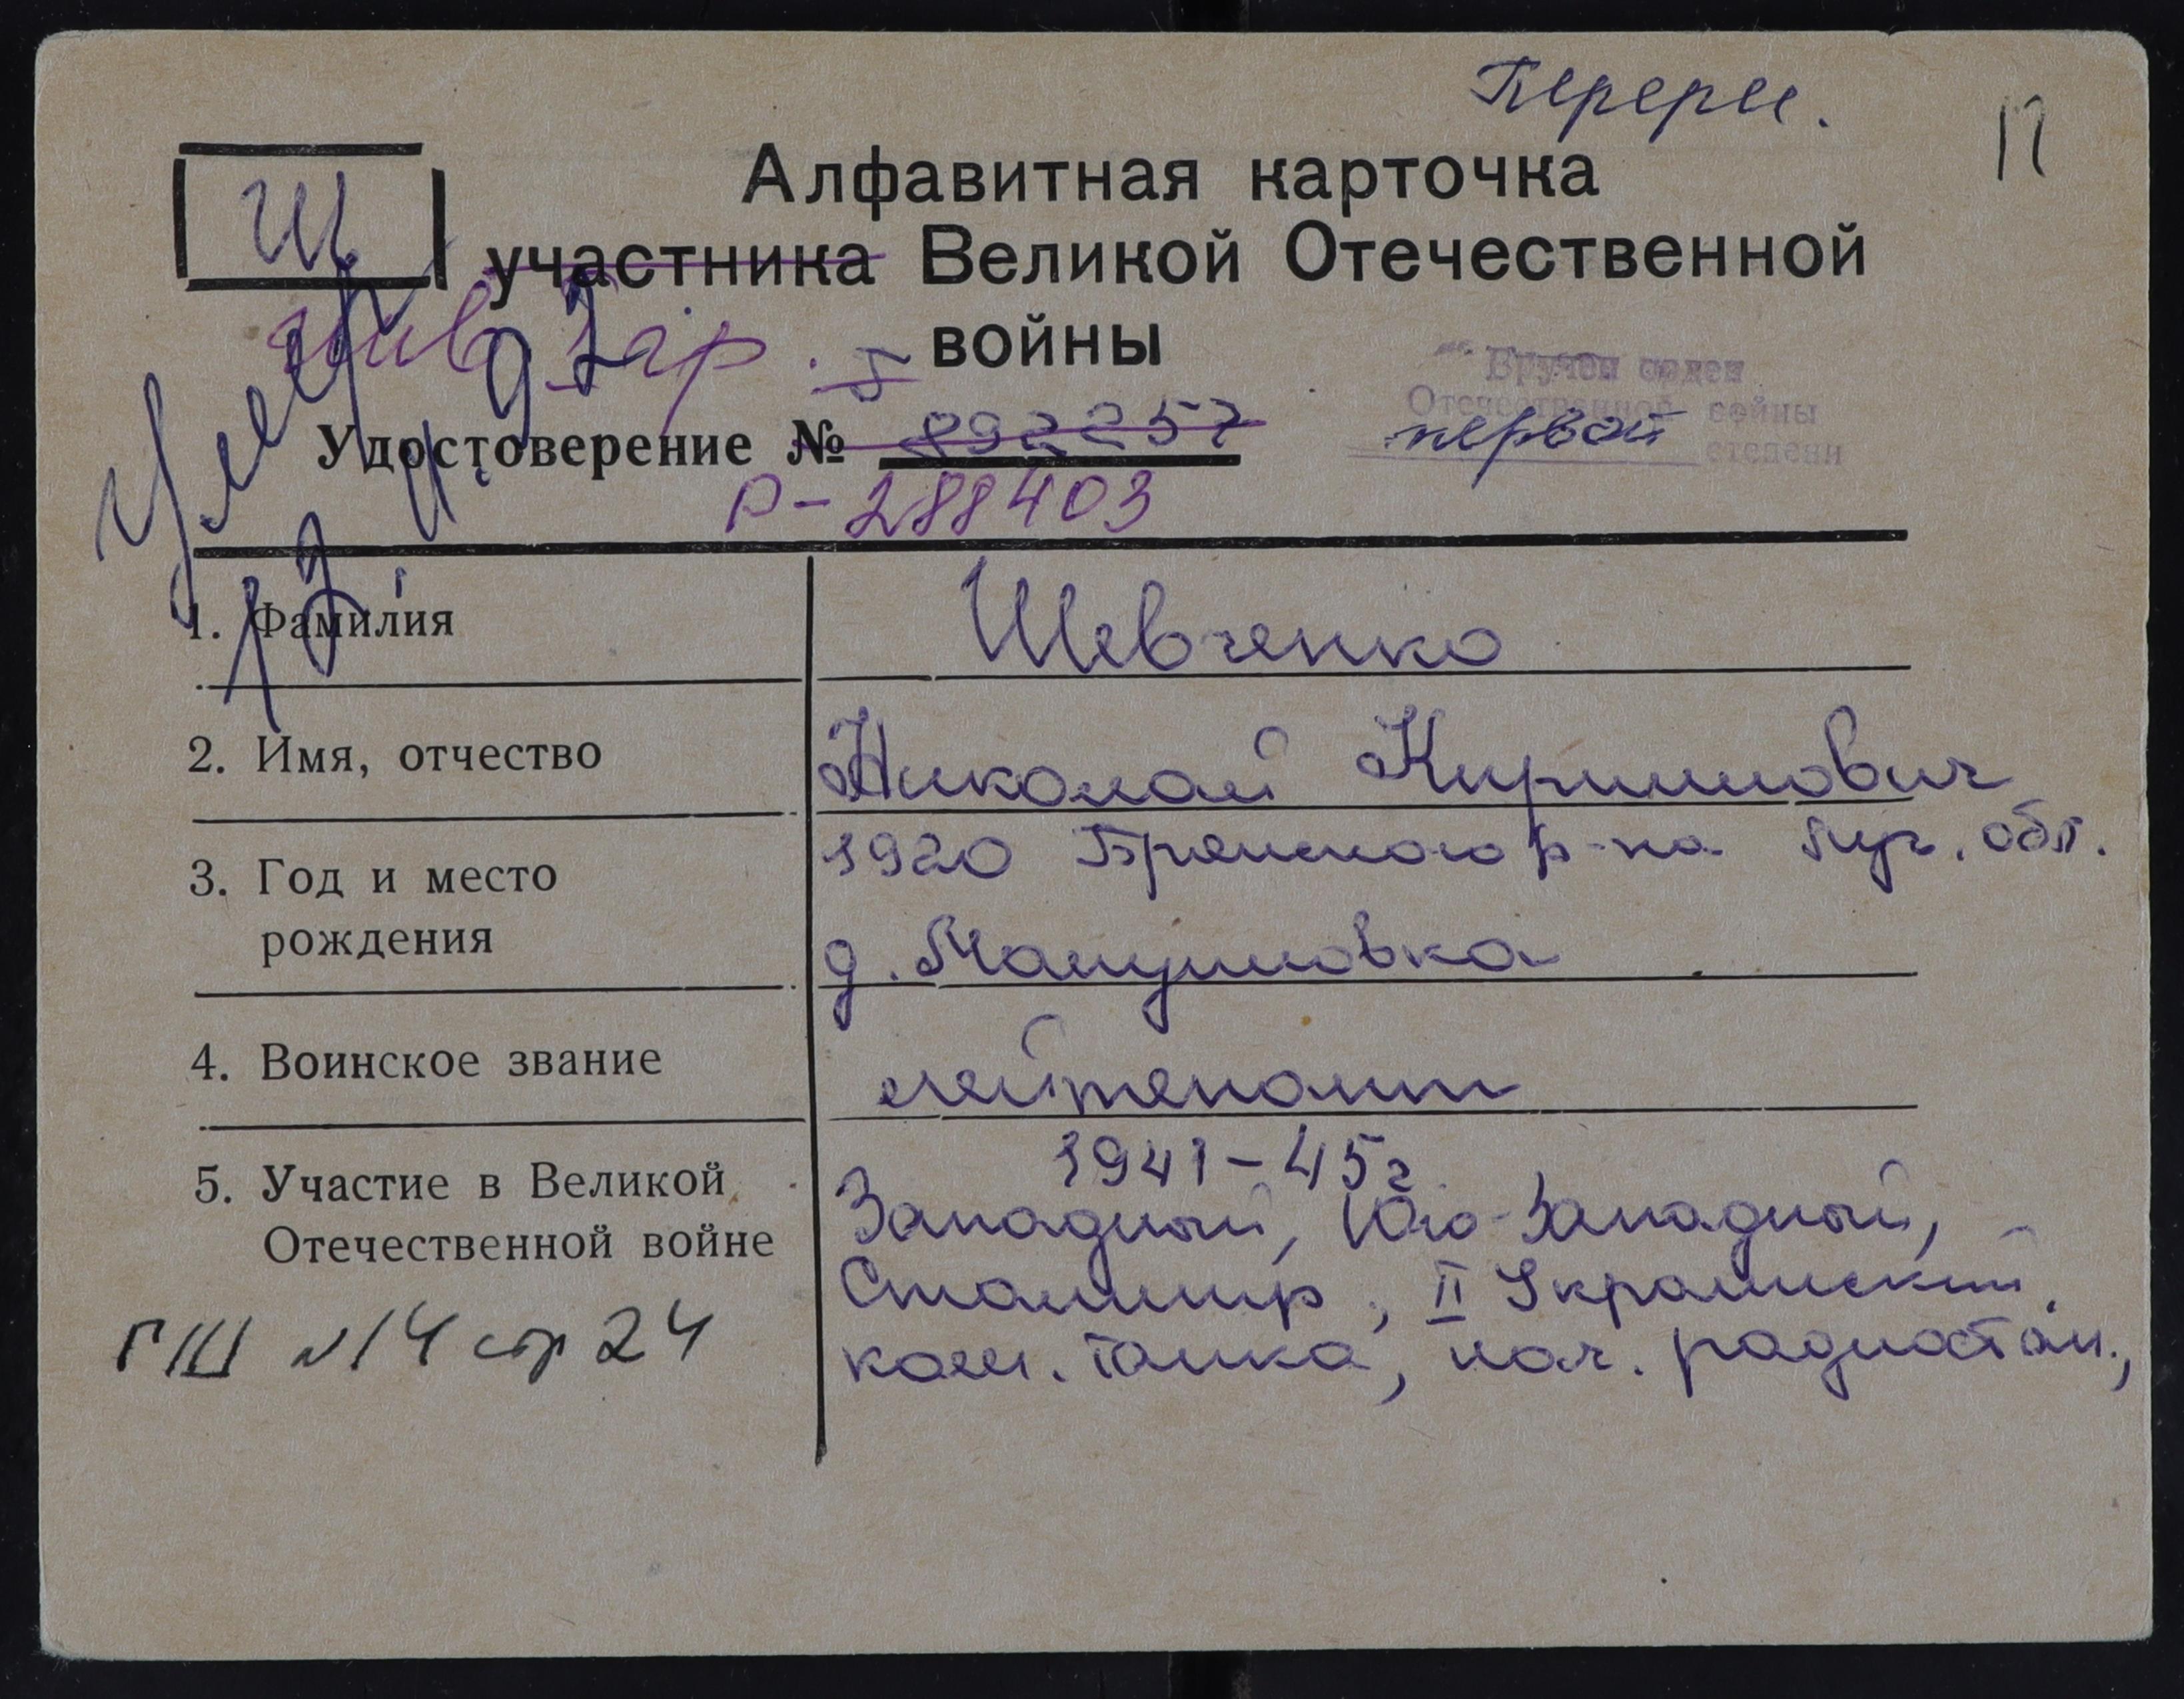 Перерег.
Алфавитная карточка
Ш
участника Великой Отечественной
инв. I гр.
войны
Вручен орден
Отечественной войны
первой степени
Удостоверение № 892257
Р-288403
Умер
1. Фамилия Шевченко
2. Имя, отчество Николай Кириллович
3. Год и место рождения 1920 Брянского р-на обл.
д.
4. Воинское звание лейтенант
5. Участие в Великой Отечественной войне 1941-45г
Западный, Юго-Западный,
Сталингр., II Украинский.
ком. танка, нач. радиостан.,
ГШ №14 стр 24